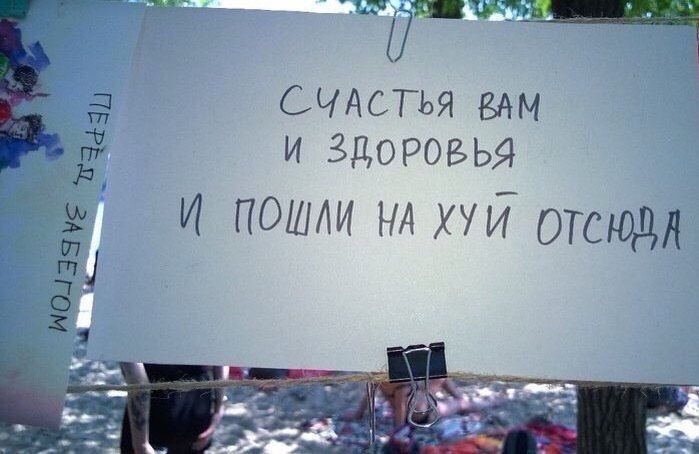 ПЕРЕД ЗАБЕГОМ
СЧАСТЬЯ ВАМ
И ЗДОРОВЬЯ
И ПОШЛИ НА ХУЙ ОТСЮДА